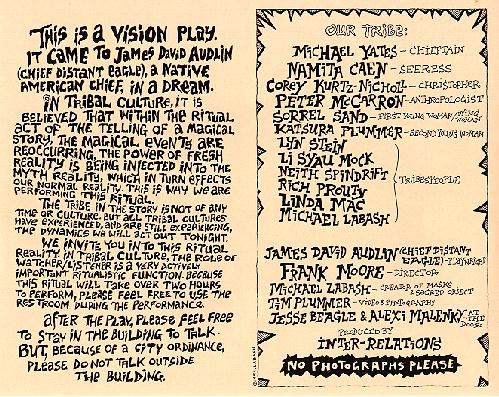 THIS IS A VISION PLAY.
IT CAME TO JAMES DAVID AUDLIN
(CHIEF DISTANT EAGLE), A NATIVE
AMERICAN CHIEF, IN A DREAM.
IN TRIBAL CULTURE, IT IS
BELIEVED THAT WITHIN THE RITUAL
ACT OF THE TELLING OF A MAGICAL
STORY, THE MAGICAL EVENTS ARE
REOCCURRING, THE POWER OF FRESH
REALITY IS BEING INJECTED INTO THE
MYTH REALITY, WHICH IN TURN EFFECTS
OUR NORMAL REALITY. THIS IS WHY WE ARE
PERFORMING THIS RITUAL.
THE TRIBE IN THE STORY IS NOT OF ANY
TIME OR CULTURE. BUT ALL TRIBAL CULTURES
HAVE EXPERIENCED, AND ARE STILL EXPERIENCING,
THE DYNAMICS WE WILL ACT OUT TONIGHT.
WE INVITE YOU INTO THIS RITUAL
REALITY IN TRIBAL CULTURE, THE ROLE OF
WATCHER/LISTENER IS A VERY ACTIVELY
IMPORTANT RITUALISTIC FUNCTION. BECAUSE
THIS RITUAL WILL TAKE OVER TWO HOURS
TO PERFORM, PLEASE FEEL FREE TO USE THE
RESTROOM DURING THE PERFORMANCE.
AFTER THE PLAY, PLEASE FEEL FREE
TO STAY IN THE BUILDING TO TALK.
BUT, BECAUSE OF A CITY ORDINANCE,
PLEASE DO NOT TALK OUTSIDE
THE BUILDING.
OUR TRIBE:
MICHAEL YATES – CHIEFTAIN
NAMITA CAEN – SEERESS
COREY KURTZ-NICHOLL – CHRISTOPHER
PETER MCCARRON – ANTHROPOLOGIST
SORREL SAND – FIRST YOUNG WOMAN
KATSURA PLUMMER – SECOND YOUNG WOMAN
LYN STEIN
LI SYAU MOCK
NEITH SPINDRIFT
RICH PROUTY
LINDA MAC
MICHAEL LABASH
TRIBESPEOPLE
JAMES DAVID AUDLAN (CHIEF DISTANT
EAGLE) – PLAYWRIGHT
FRANK MOORE – DIRECTOR
MICHAEL LABASH – CREATOR OF MASKS
& SACRED OBJECT
TIM PLUMMER – VIDEO & PHOTOGRAPHY
JESSE BEAGLE & ALEXI MALENKY – AT THE
DOOR
PRODUCED BY
INTER-RELATIONS
NO PHOTOGRAPHS PLEASE